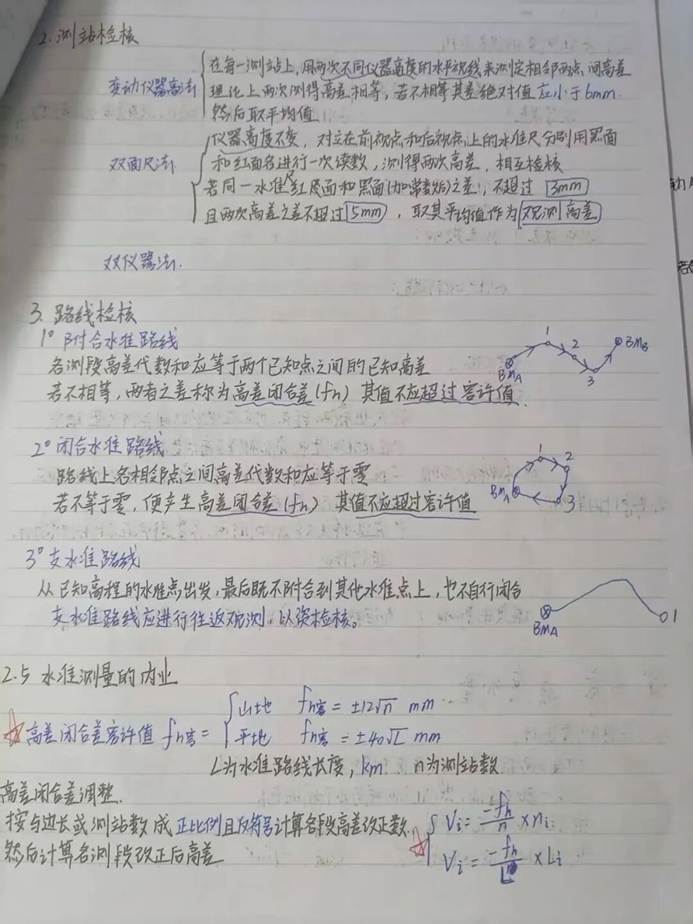 2. 测站检核
变动仪器高法
在每一测站上,用两次不同仪器高度的水平视线来测定相邻两点间高差
理论上两次测得高差相等,若不相等其差绝对值应小于6mm.
然后取平均值
双面尺法
仪器高度不变,对立在前视点和后视点上的水准尺分别用黑面
和红面各进行一次读数,测得两次高差,相互检核
若同一水准尺红面和黑面(加常数后)之差,不超过 3mm
且两次高差之差不超过 5mm ,取其平均值作为 观测高差
双仪器法.
3. 路线检核
1° 附合水准路线
各测段高差代数和应等于两个已知点之间的已知高差
若不相等,两者之差称为高差闭合差(fh) 其值不应超过容许值.
BMA 1 2 3 BMB
2° 闭合水准路线
路线上各相邻点之间高差代数和应等于零
若不等于零,便产生高差闭合差(fh) 其值不应超过容许值
BMA 1 2 3
3° 支水准路线
从已知高程的水准点出发,最后既不附合到其他水准点上,也不自行闭合
支水准路线应进行往返观测,以资检核。
BMA 1
2.5 水准测量的内业
☆高差闭合差容许值 fh容=
山地 fh容 = ±12√n mm
平地 fh容 = ±40√L mm
L为水准路线长度,km n为测站数
高差闭合差调整.
按与边长或测站数成正比例且反符号计算各段高差改正数.
然后计算各测段改正后高差
☆ Vi = -fh/n × ni
Vi = -fh/L × Li